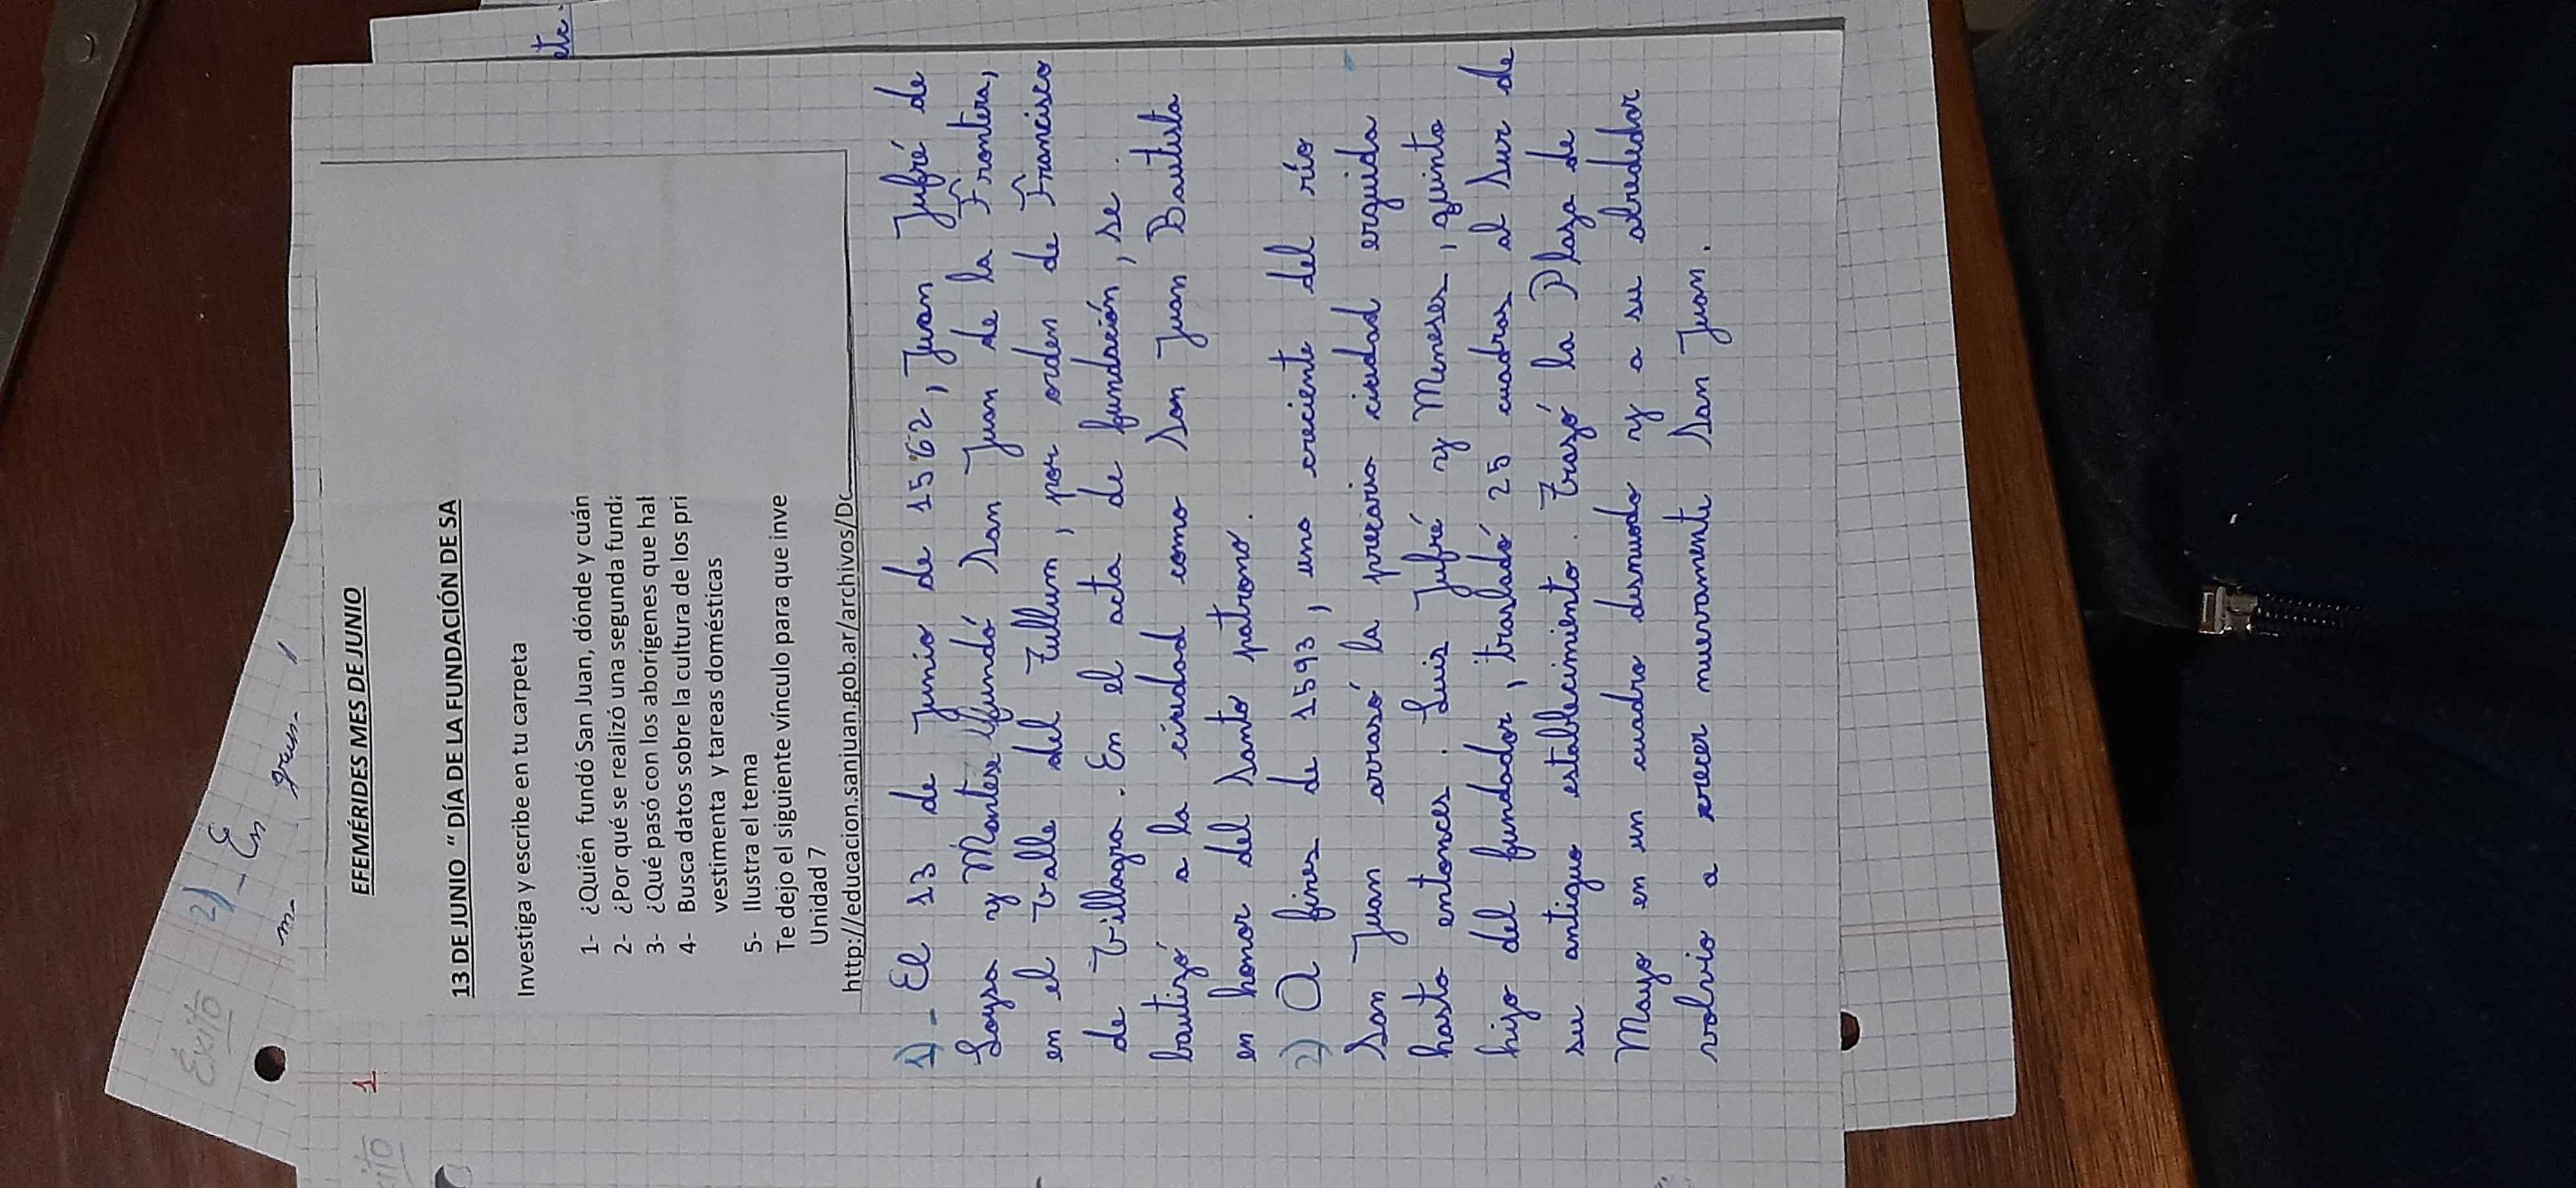 Éxito
2)_ En
etc.
1
EFEMÉRIDES MES DE JUNIO
13 DE JUNIO " DÍA DE LA FUNDACIÓN DE SA
Investiga y escribe en tu carpeta
1- ¿Quién fundó San Juan, dónde y cuán
2- ¿Por qué se realizó una segunda fund
3- ¿Qué pasó con los aborígenes que hal
4- Busca datos sobre la cultura de los pri
vestimenta y tareas domésticas
5- Ilustra el tema
Te dejo el siguiente vínculo para que inve
Unidad 7
http://educacion.sanjuan.gob.ar/archivos/Dc
1)_ El 13 de junio de 1562, Juan Jufré de
Loysa y Montese fundó San Juan de la Frontera,
en el valle del Tullum, por orden de Francisco
de Villagra. En el acta de fundación, se
bautizó a la ciudad como San Juan Bautista
en honor del santo patrono.
2) A fines de 1593, una creciente del río
San Juan arrasó la precaria ciudad erguida
hasta entonces. Luis Jufré y Meneses, quinto
hijo del fundador, trasladó 25 cuadras al sur de
su antiguo establecimiento. Trazó la Plaza de
Mayo en un cuadro desnudo y a su alrededor
volvio a crecer nuevamente San Juan.